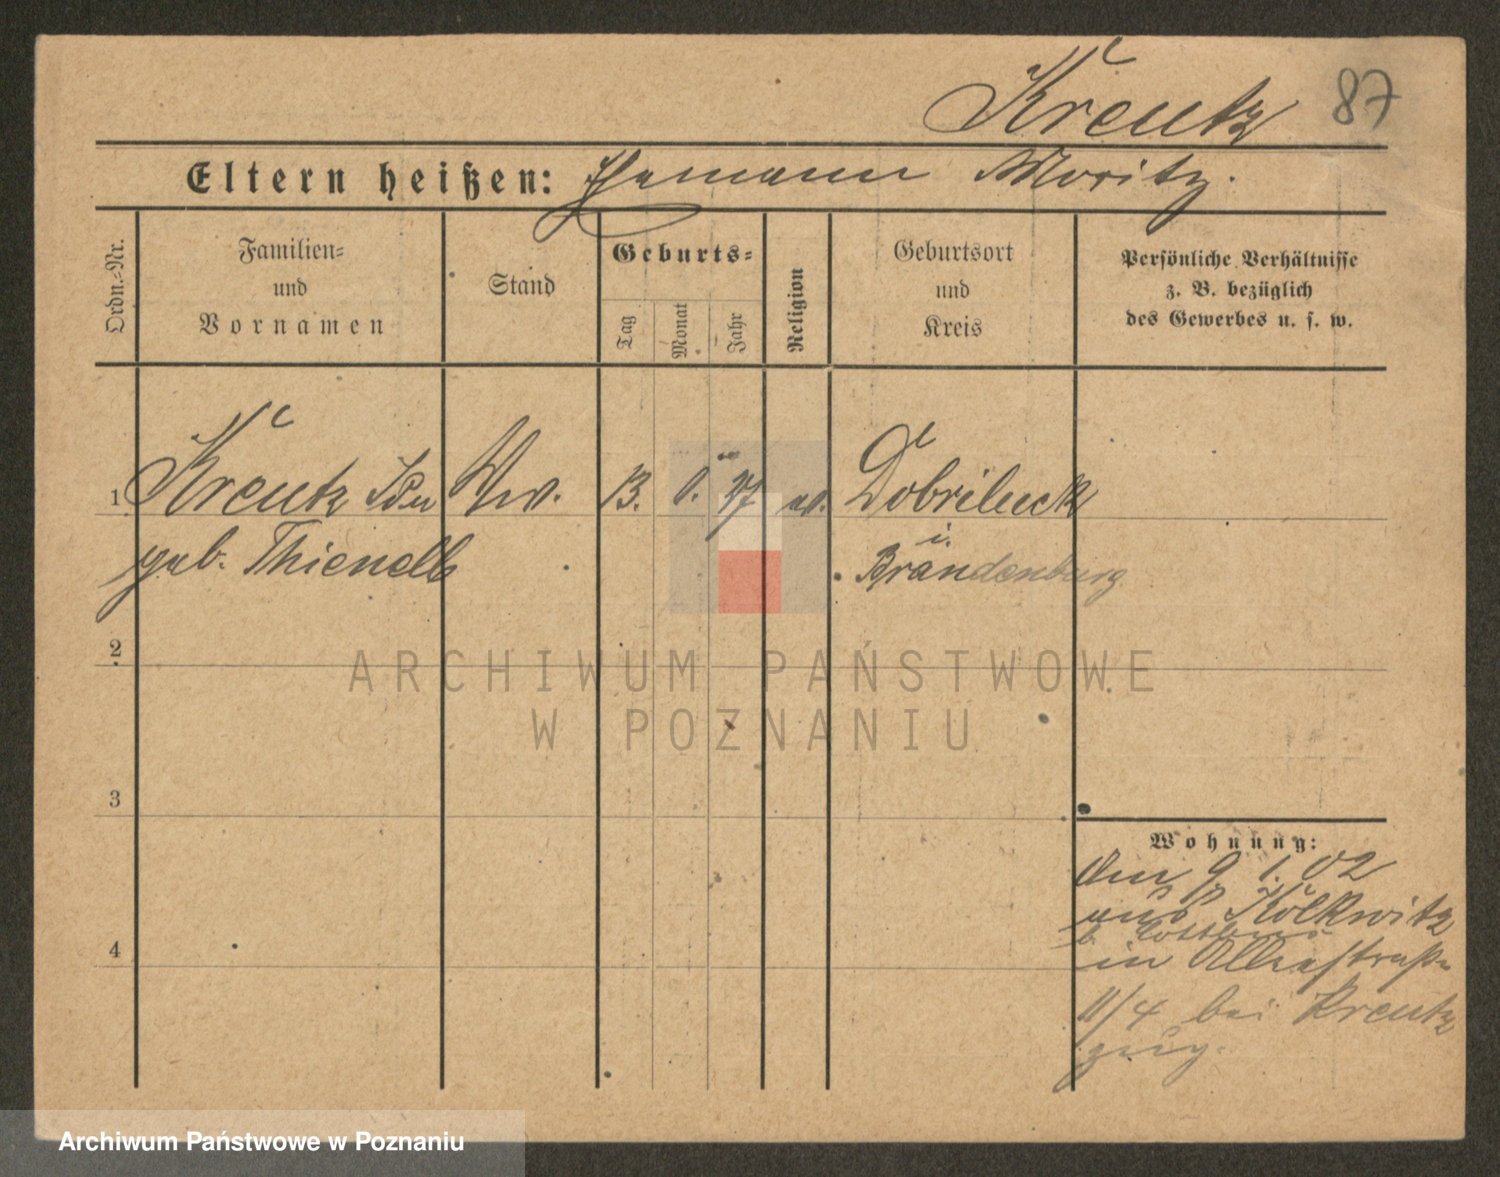 Kreutz 87
Eltern heißen: Hermann Moritz.
Ordn.-Nr.
Familien-
und
Vornamen
Stand
Geburts-
Tag
Monat
Jahr
Religion
Geburtsort
und
Kreis
Persönliche Verhältnisse
z. B. bezüglich
des Gewerbes u. s. w.
1 Kreutz Ida Ww. 13. 27 ev. Dobrilugk
geb. i.
Brandenburg
2
3
4
ARCHIWUM PAŃSTWOWE
W POZNANIU
Wohnung:
den 9 1. 02
aus Kolkwitz
b. Cottbus
in
11/4 bei Kreutz
zug.
Archiwum Państwowe w Poznaniu